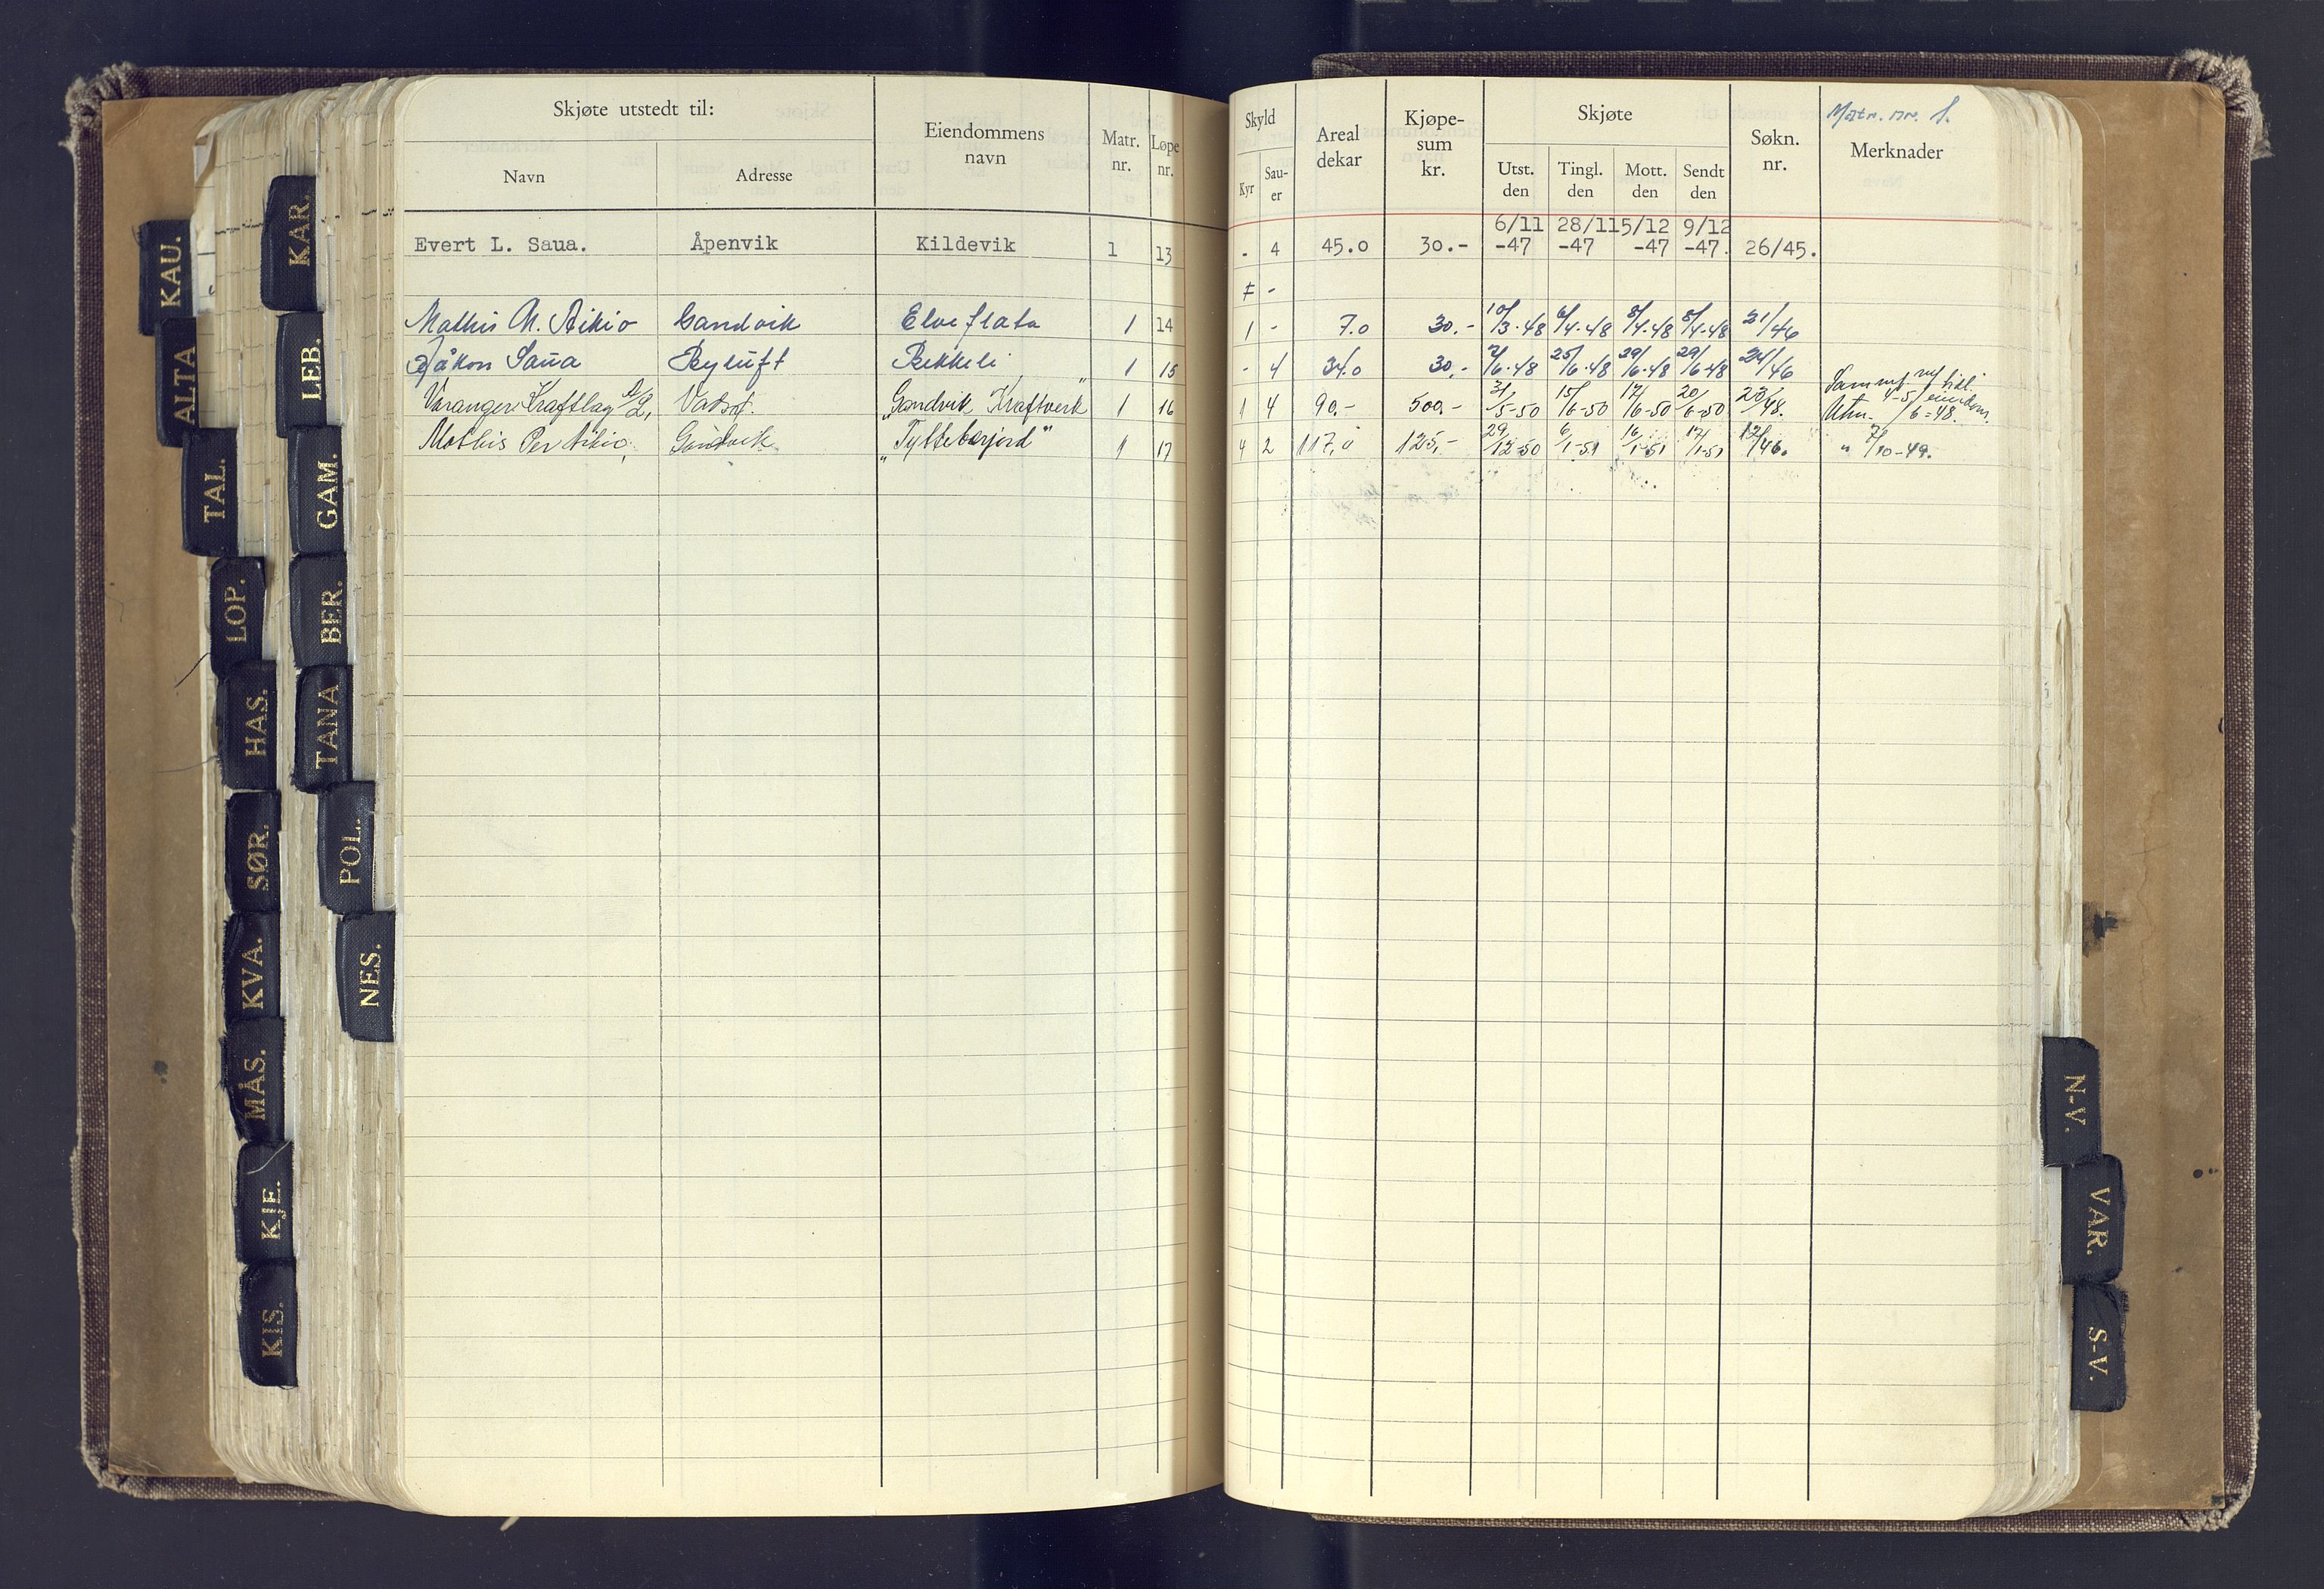 Skjøte utstedt til:
Navn
Adresse
Eiendommens
navn
Matr.
nr.
Løpe
nr.
Skyld
Kyr
Sau-
er
Areal
dekar
Kjøpe-
sum
kr.
Skjøte
Utst.
den
Tingl.
den
Mott.
den
Sendt
den
Søkn.
nr.
Matr. nr. 1.
Merknader
6/11 28/11 5/12 9/12
Evert L. Saua. Åpenvik Kildevik 1 13 - 4 45.0 30.- -47 -47 -47 -47. 26/45.
Mathis M. Aikio Gandvik Elveflata 1 14 1 - 7.0 30.- 10/3-48 6/4-48 8/4-48 8/4-48 21/46
Håkon Saua Byluft Bekkeli 1 15 - 4 34.0 30.- 2/6-48 25/6-48 29/6-48 29/6-48 24/46
Varanger Kraftlag A/L, Vadsø. "Gandvik Kraftverk" 1 16 1 4 90.- 500,- 31/5-50 15/6-50 17/6-50 20/6-50 23/48.
Mathis Per Aikio, Gandvik "Tyttebærjord" 1 17 4 2 117,0 125,- 29/12-50 6/1-51 16/1-51 17/1-51 12/46. " 7/10-49.
KAU.
ALTA
TAL.
LOP.
HAS.
SØR.
KVA.
MÅS.
KJE.
KIS.
KAR.
LEB.
GAM.
BER.
TANA
POL.
NES.
N-V.
VAR.
S-V.